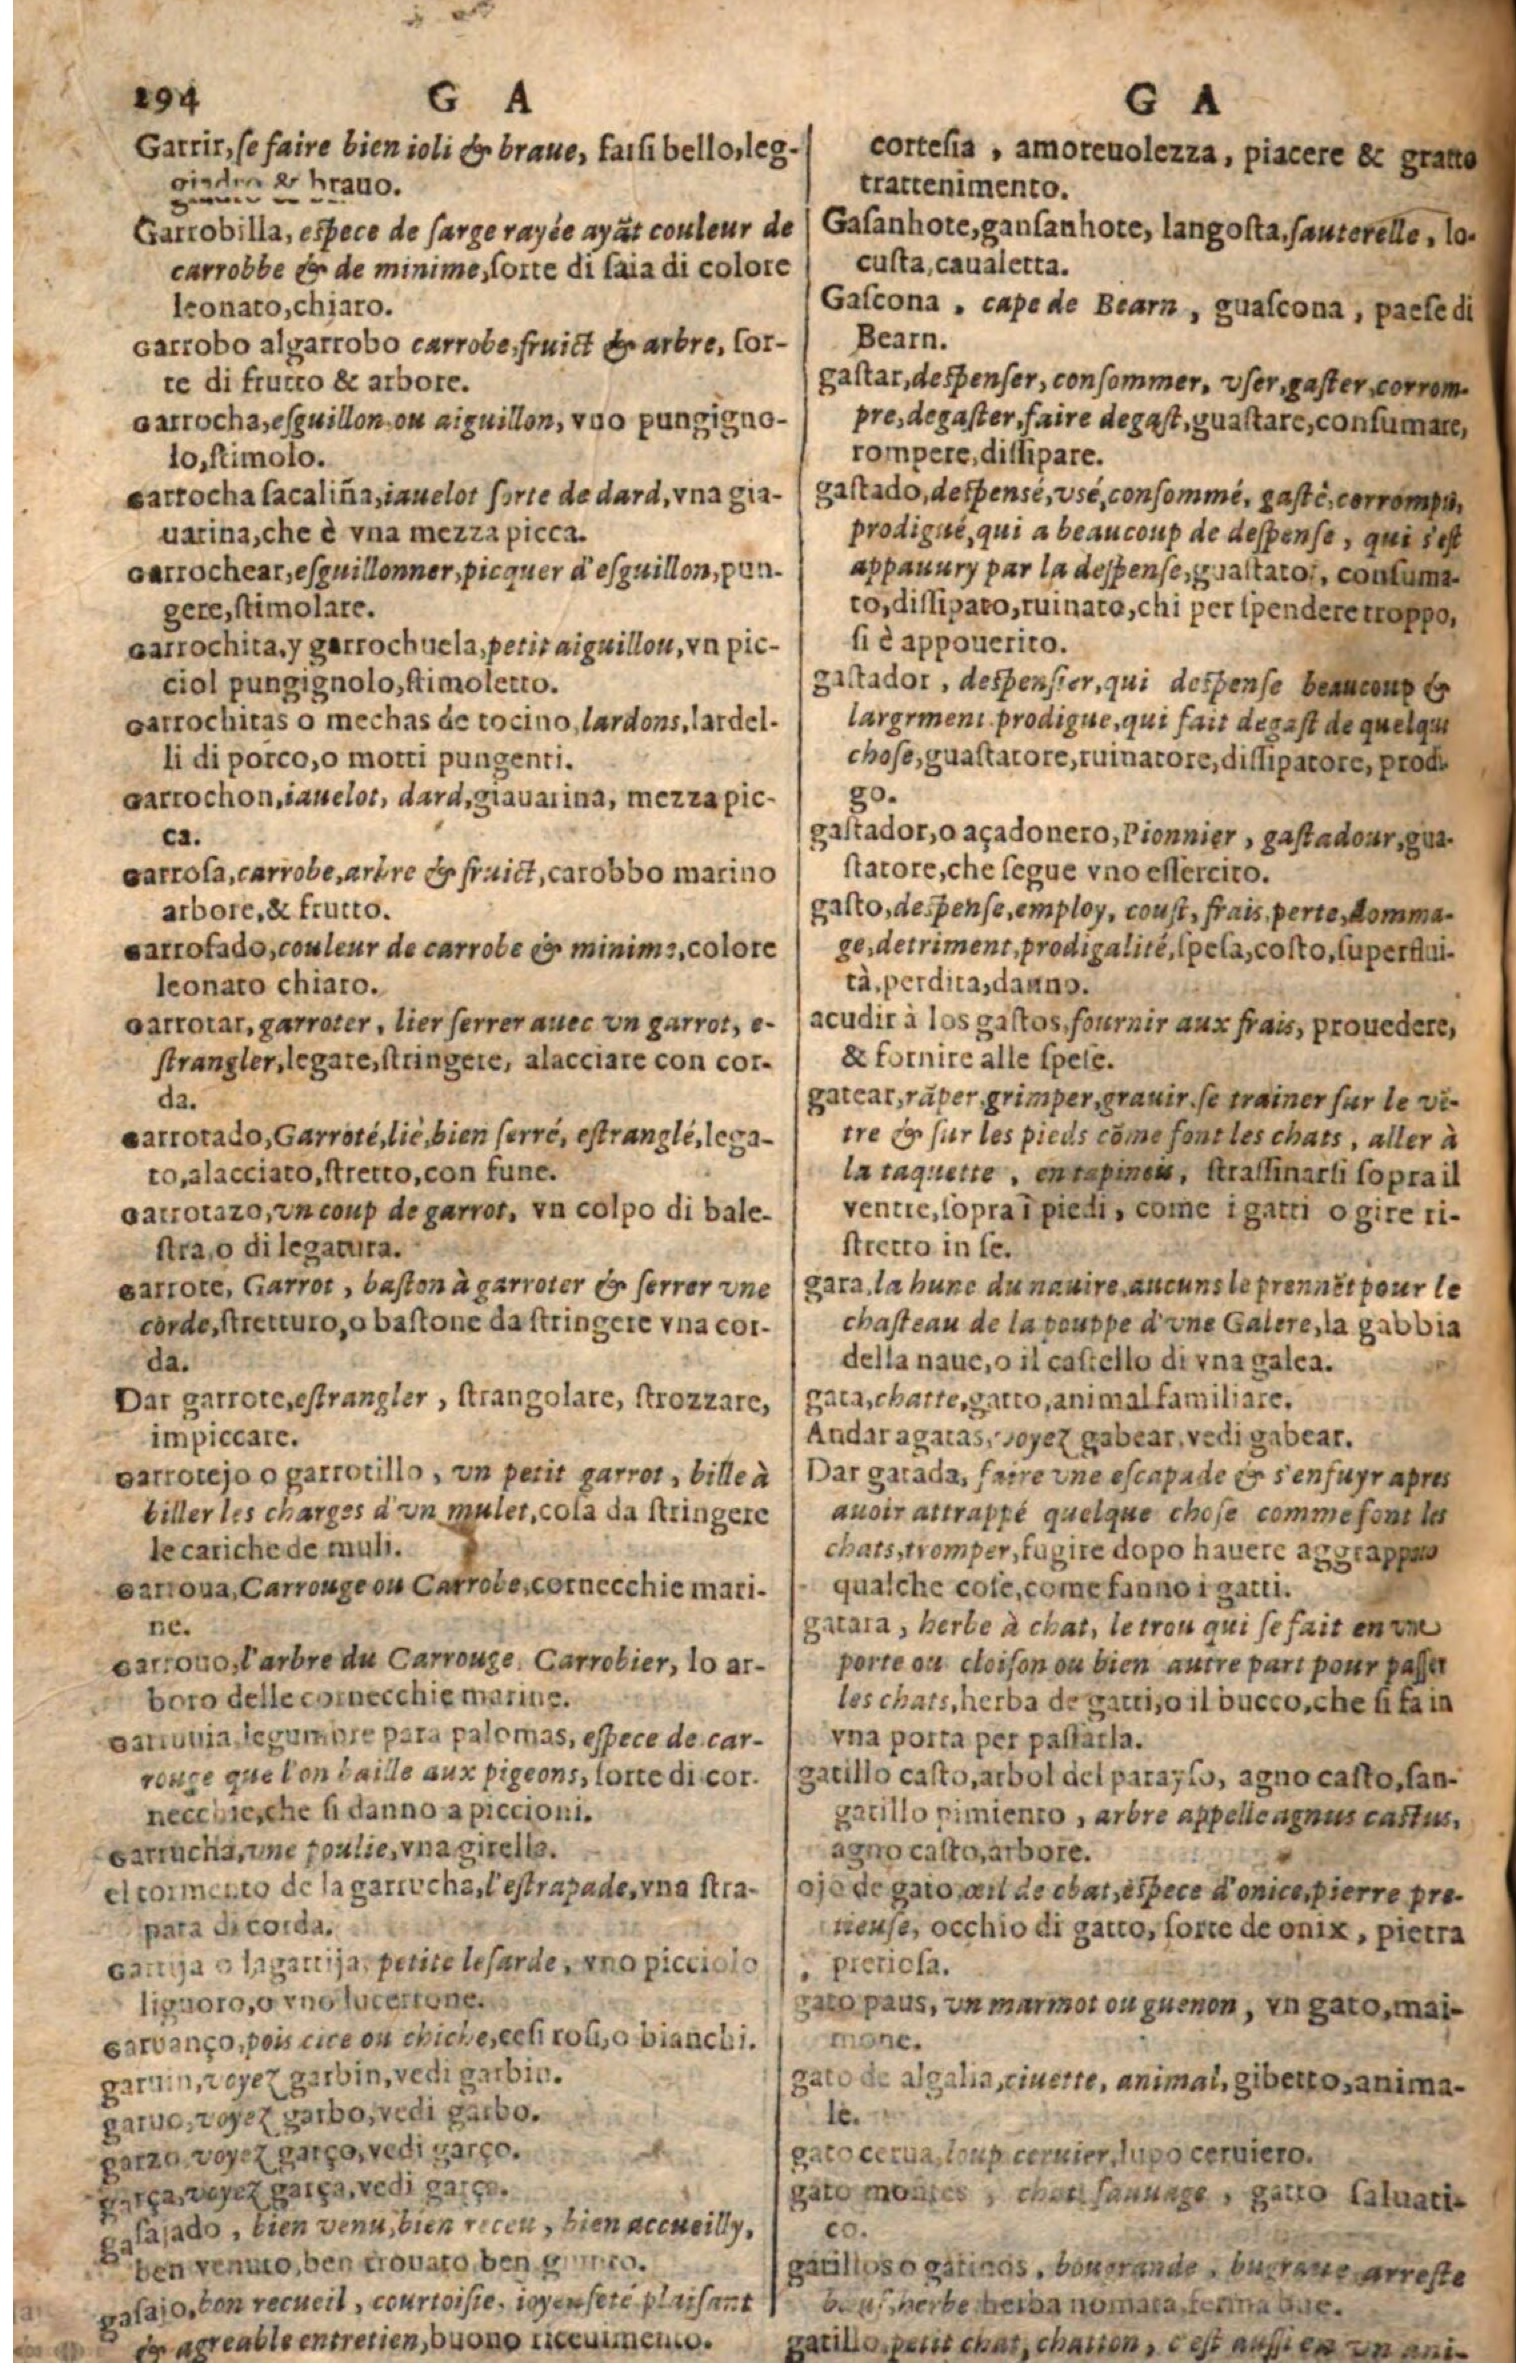 294 G A
Garrir, se faire bien ioli & braue, farsi bello, leg-
giadro & brauo.
Garrobilla, espece de sarge rayée ayāt couleur de
carrobbe & de minime, sorte di saia di colore
leonato, chiaro.
Garrobo algarrobo carrobe, fruict & arbre, sor-
te di frutto & arbore.
Garrocha, esguillon ou aiguillon, vno pungigno-
lo, stimolo.
Garrocha sacaliña, iauelot sorte de dard, vna gia-
uarina, che è vna mezza picca.
Garrochear, esguillonner, picquer d'esguillon, pun-
gere, stimolare.
Garrochita, y garrochuela, petit aiguillou, vn pic-
ciol pungignolo, stimoletto.
Garrochitas o mechas de tocino, lardons, lardel-
li di porco, o motti pungenti.
Garrochon, iauelot, dard, giauarina, mezza pic-
ca.
Garrofa, carrobe, arbre & fruict, carobbo marino
arbore, & frutto.
Garrofado, couleur de carrobe & minime, colore
leonato chiaro.
Garrotar, garroter, lier serrer auec vn garrot, e-
strangler, legare, stringere, alacciare con cor-
da.
Garrotado, Garroté, lié, bien serré, estranglé, lega-
to, alacciato, stretto, con fune.
Garrotazo, vn coup de garrot, vn colpo di bale-
stra, o di legatura.
Garrote, Garrot, baston à garroter & serrer vne
corde, stretturo, o bastone da stringere vna cor-
da.
Dar garrote, estrangler, strangolare, strozzare,
impiccare.
Garrotejo o garrotillo, vn petit garrot, bille à
biller les charges d'vn mulet, cosa da stringere
le cariche de muli.
Garroua, Carrouge ou Carrobe, cornecchie mari-
ne.
Garrouo, l'arbre du Carrouge, Carrobier, lo ar-
boro delle cornecchie marine.
Garrouia, legumbre para palomas, espece de car-
rouge que l'on baille aux pigeons, sorte di cor-
necchie, che si danno a piccioni.
Garrucha, vne poulie, vna girella.
el tormento de la garrucha, l'estrapade, vna stra-
pata di corda.
Garrija o lagartija, petite lesarde, vno picciolo
liguoro, o vno lucertone.
Garuanço, pois cice ou chiche, cesi rosi, o bianchi.
garuin, voyez garbin, vedi garbin.
garuo, voyez garbo, vedi garbo.
garzo, voyez garço, vedi garço.
garça, voyez garça, vedi garça.
gasajado, bien venu, bien receu, bien accueilly,
ben venuto, ben trouato, ben giunto.
gasajo, bon recueil, courtoisie, ioyenseté plaisant
& agreable entretien, buono riceuimento.
G A
cortesia, amoreuolezza, piacere & gratto
trattenimento.
Gasanhote, gansanhote, langosta, sauterelle, lo-
custa, caualetta.
Gascona, cape de Bearn, guascona, paese di
Bearn.
gastar, despenser, consommer, vser, gaster, corrom-
pre, degaster, faire degast, guastare, consumare,
rompere, dissipare.
gastado, despensé, vsé, consommé, gasté, corrompu,
prodigué, qui a beaucoup de despense, qui s'est
appauury par la despense, guastato, consuma-
to, dissipato, ruinato, chi per spendere troppo,
si è appouerito.
gastador, despensier, qui despense beaucoup &
largrment prodigue, qui fait degast de quelque
chose, guastatore, ruinatore, dissipatore, prodi-
go.
gastador, o açadonero, Pionnier, gastadour, gua-
statore, che segue vno essercito.
gasto, despense, employ, coust, frais, perte, domma-
ge, detriment, prodigalité, spesa, costo, superflui-
tà, perdita, danno.
acudir à los gastos, fournir aux frais, prouedere,
& fornire alle spese.
gatear, rāper, grimper, grauir, se trainer sur le vē-
tre & sur les pieds cōme font les chats, aller à
la taquette, en tapinois, strassinarsi sopra il
ventre, sopra i piedi, come i gatti o gire ri-
stretto in se.
gata, la hune du nauire, aucuns le prennēt pour le
chasteau de la pouppe d'vne Galere, la gabbia
della naue, o il castello di vna galea.
gata, chatte, gatto, animal familiare.
Andar a gatas, voyez gabear, vedi gabear.
Dar gatada, faire vne escapade & s'enfuyr apres
auoir attrappé quelque chose comme font les
chats, tromper, fugire dopo hauere aggrappato
qualche cose, come fanno i gatti.
gatara, herbe à chat, le trou qui se fait en vne
porte ou cloison ou bien autre part pour passer
les chats, herba de gatti, o il bucco, che si fa in
vna porta per passarla.
gatillo casto, arbol del parayso, agno casto, san-
gatillo pimiento, arbre appelle agnus castus,
agno casto, arbore.
ojo de gato, œil de chat, espece d'onice, pierre pre-
tieuse, occhio di gatto, sorte de onix, pietra
pretiosa.
gato paus, vn marmot ou guenon, vn gato, mai-
mone.
gato de algalia, ciuette, animal, gibetto, anima-
le.
gato cerua, loup ceruier, lupo ceruiero.
gato montes, chat sauuage, gatto saluati-
co.
gatillos o gatinos, bougrande, bugraue arreste
beuf, herbe herba nomata, ferma bue.
gatillo, petit chat, chatton, c'est aussi en vn ani-